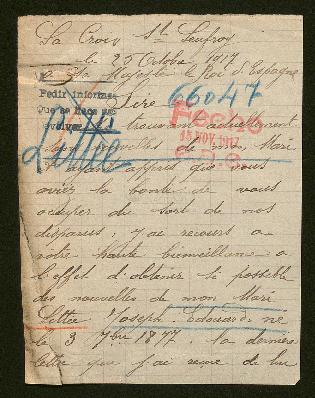 La Croix St Leufroy
le 25 Octobre 1917
a Sa Majesté le Roi d'Espagne
Pedir informes
Que se hace
Sire 66047
Hecho
15 NOV. 1917
me trouvant actuellement
nouvelles de mon Mari
et ayant appris que vous
aviez la bonté de vous
occuper du sort de nos
disparus, j'ai recours a
votre haute bienveillance a
l'effet d'obtenir si possible
des nouvelles de mon Mari
Joseph Edouard né
le 3 7bre 1877. La dernière
lettre que j'ai reçue de lui